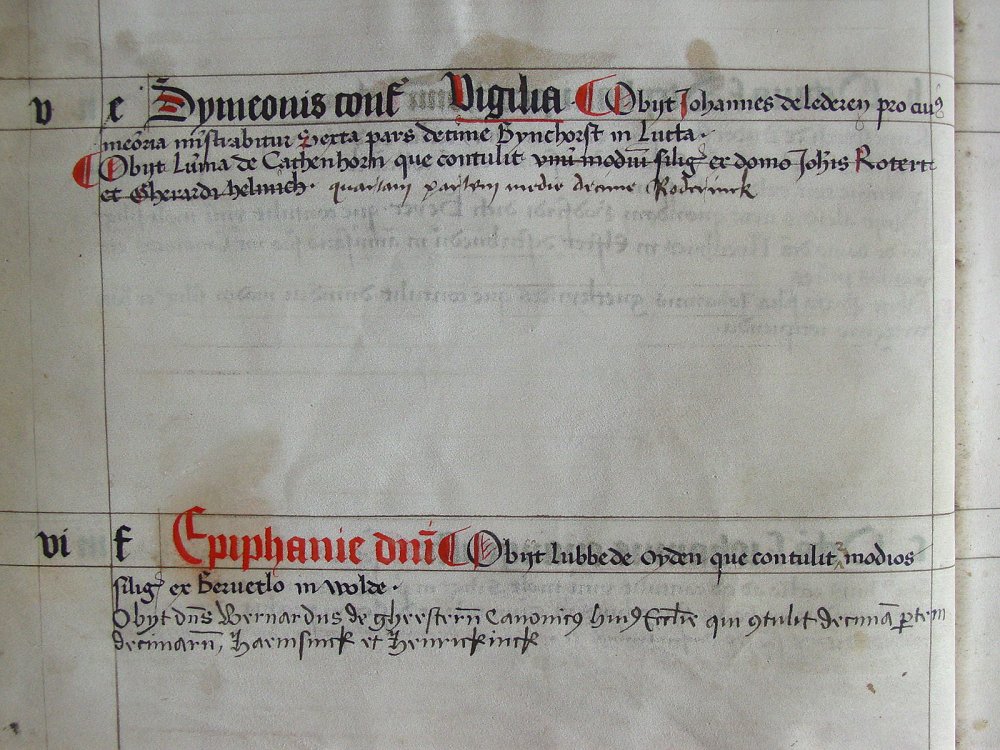 v e Symeonis conf Vigilia Obijt Johannes de lederen pro cuiꝰ
meōria mīstrabitur Sexta pars decime Bynchorst in Lutta
Obijt Luma de Cathenhorn que contulit vnū modiū silig̕ ex domo Joh̄is Rotert
et Gherardi helmich quartam partem medie decime Roderinck
vi f Epiphanie dnī Obijt Lubbe de oyden que contulit modios
silig̕ ex in wolde
Obijt dn̄s Bernardus de gheestern̄ Canonicꝰ huiꝰ Eccl̄ie qui ꝯtulit decimā ꝑtem
decimarū, Haemsinck et Henrickinck